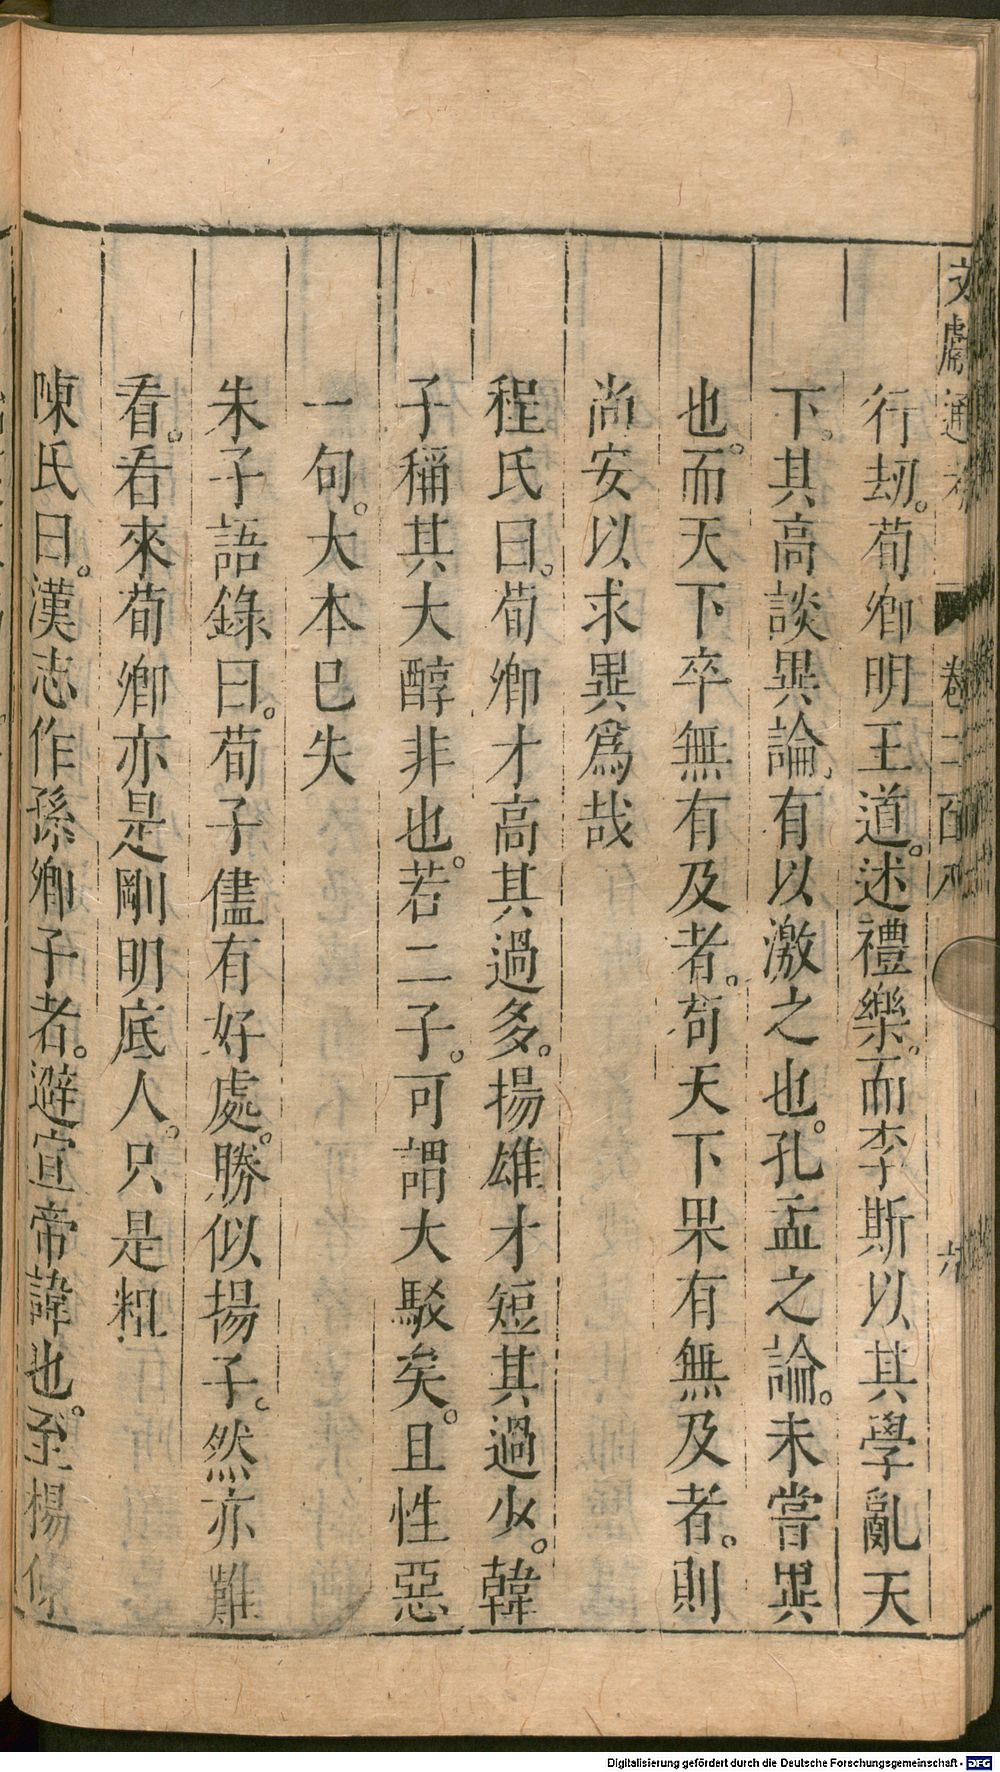 文獻通考 卷二百八 六
行刼。荀卿明王道。述禮樂。而李斯以其學亂天
下。其高談異論。有以激之也。孔孟之論。未嘗異
也。而天下卒無有及者。苟天下果有無及者。則
尚安以求異爲哉
程氏曰。荀卿才高其過多。揚雄才短其過少。韓
子稱其大醇非也。若二子。可謂大駁矣。且性惡
一句。大本已失
朱子語錄曰。荀子儘有好處。勝似揚子。然亦難
看。看來荀卿亦是剛明底人。只是粗
陳氏曰。漢志作孫卿子者。避宣帝諱也。至楊倞
Digitalisierung gefördert durch die Deutsche Forschungsgemeinschaft - DFG